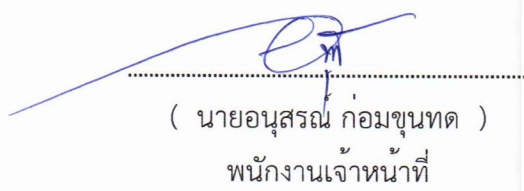 ( นายอนุสรณ์ ก่อมขุนทด )
พนักงานเจ้าหน้าที่